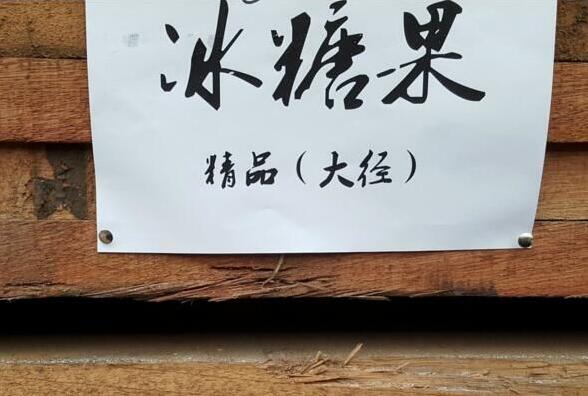 冰糖果
精品（大径）